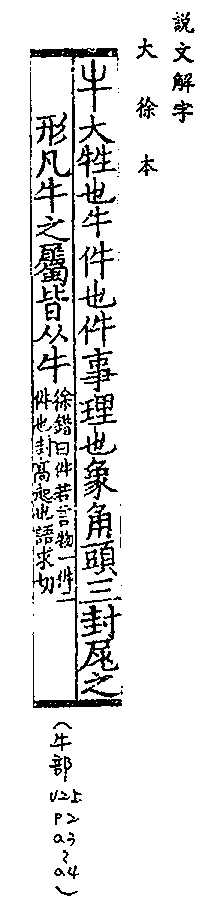 説文解字
大徐本
牛大牲也牛件也件事理也象角頭三封𡰣之
形凡牛之屬皆从牛徐鍇曰件若言物一件二
件也封高起也語求切
(牛部
V25
P2
a3
~
a4)